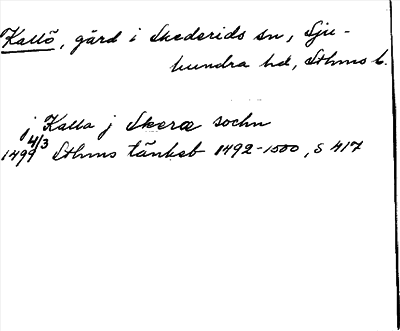 Kallö, gård i Skederids sn, Sju-
hundra hd, Sthms l.
j Kalla j Skeræ sochn
1499 4/3 Sthms tänkeb 1492-1500, s 417